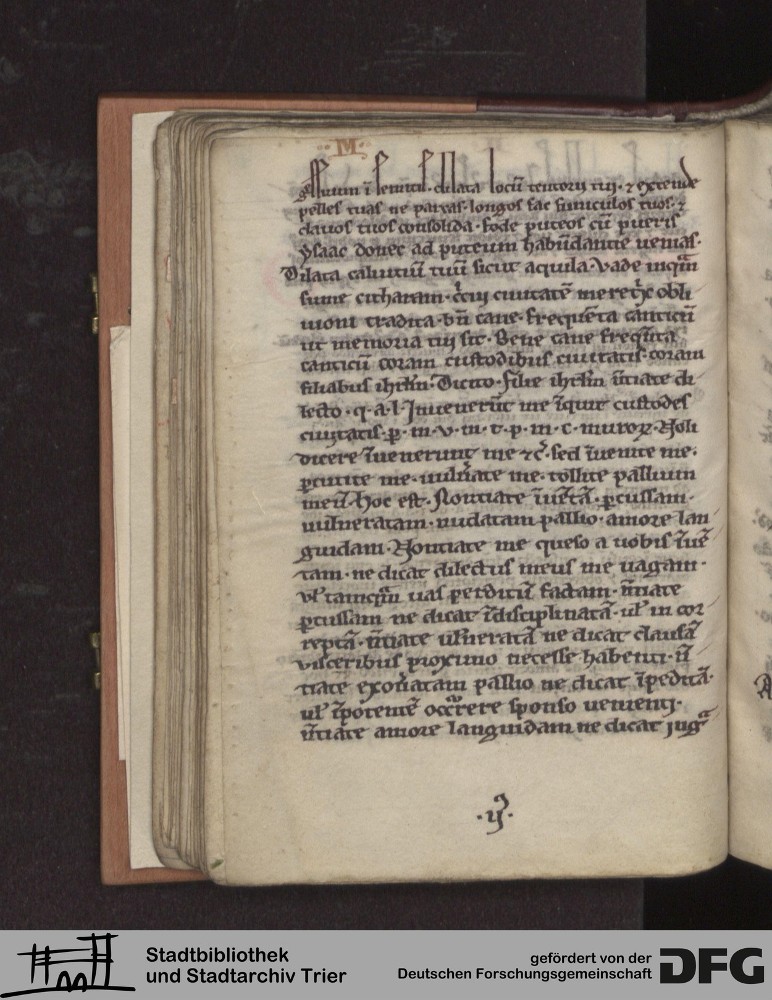 ·M·
locū tentorii tui · ⁊ extende
pelles tuas ne parcas · longos fac funiculos tuos · ⁊
clauos tuos consolida · fode puteos cū pueris
ysaac donec ad puteum habūdantie uenias ·
Dilata caluitiū tuū sicut aquila · Vade inquā
sume citharam · ciuitatē obli
uioni tradita · bn̄ cane · frequēta canticū
ut memoria tui sit · Bene cane frequēta
canticū coram custodibus ciuitatis · coram
filiabus ihrlm̄ · Dicito · filie ihrlm̄ nūtiate di
lecto · q · a · l · Inuenerūt me īquit custodes
ciuitatis · p̄ · m · v · m · t · p · m · c · muroꝝ · Noli
dicere īuenerunt me ⁊c̄ · sed īuenite me ·
ꝑcutite me · uulnate me · tollite pallium
meū · hoc est · Nontiate īuētā · ꝑcussam ·
uulneratam · nudatam pallio · amore lan
guidam · Nontiate me queso a uobis īuē
tam · ne dicat dilectus meus me uagam ·
ul' tamquā uas perditū factam · nūtiate
ꝑcussam ne dicat īdisciplinatā · ul' in cor
reptā · nūtiate uulneratā ne dicat clausā
visceribus proximo necesse habenti · nū
tiate exonatam pallio ne dicat īpeditā ·
ul' īpotentē occrere sponso uenienti ·
nūtiate amore languidam ne dicat iugᵃ
Stadtbibliothek
und Stadtarchiv Trier
gefördert von der
Deutschen Forschungsgemeinschaft
DFG